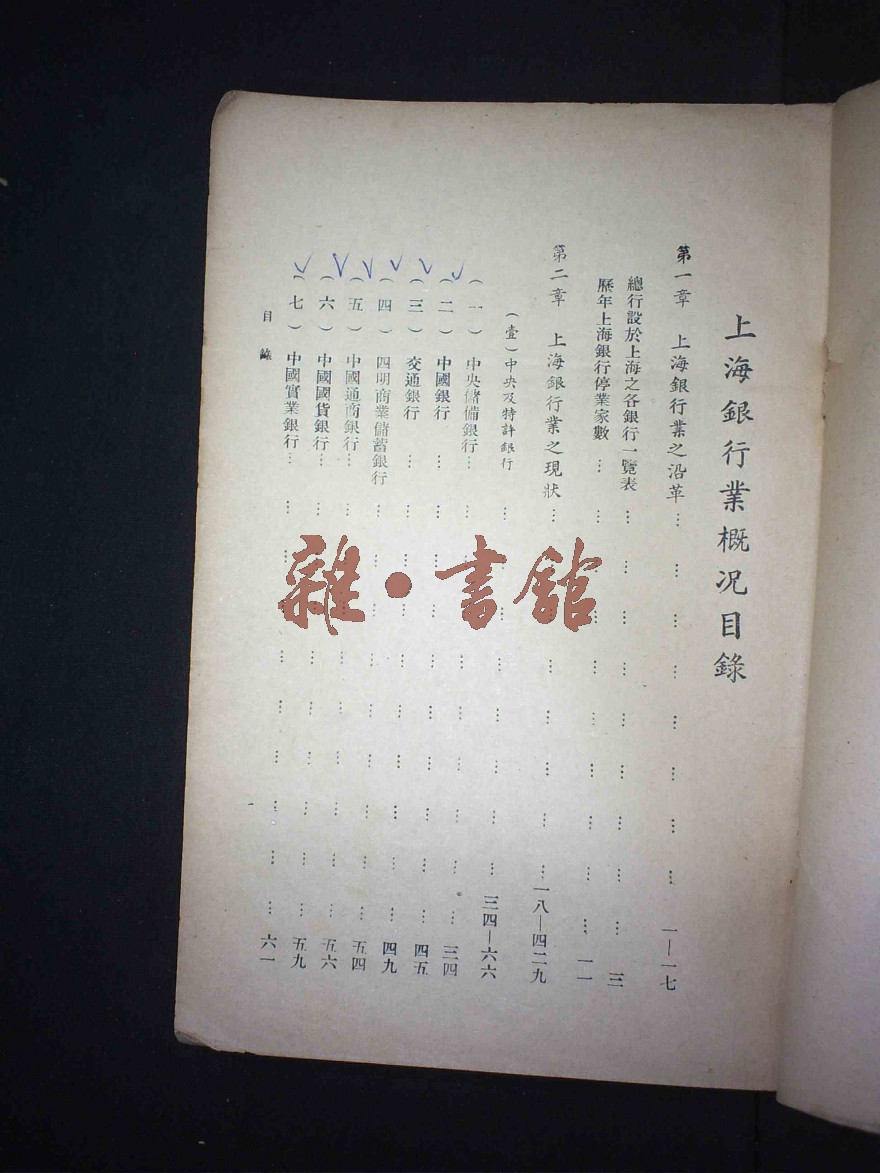 上海銀行業概況目錄
第一章 上海銀行業之沿革 … … … … … … … … 一—一七
總行設於上海之各銀行一覽表 … … … … … … … … … 三
歷年上海銀行停業家數 … … … … … … … … … … 一一
第二章 上海銀行業之現狀 … … … … … … … … 一八—四二九
(壹)中央及特許銀行 … … … … … … … … 三四—六六
(一) 中央儲備銀行 … … … … … … … … … … 三四
(二) 中國銀行 … … … … … … … … … … 四五
(三) 交通銀行 … … … … … … … … … … 四九
(四) 四明商業儲蓄銀行 … … … … … … … … … 五四
(五) 中國通商銀行 … … … … … … … … … … 五六
(六) 中國國貨銀行 … … … … … … … … … … 五九
(七) 中國實業銀行 … … … … … … … … … … 六一
目錄
雜·書館